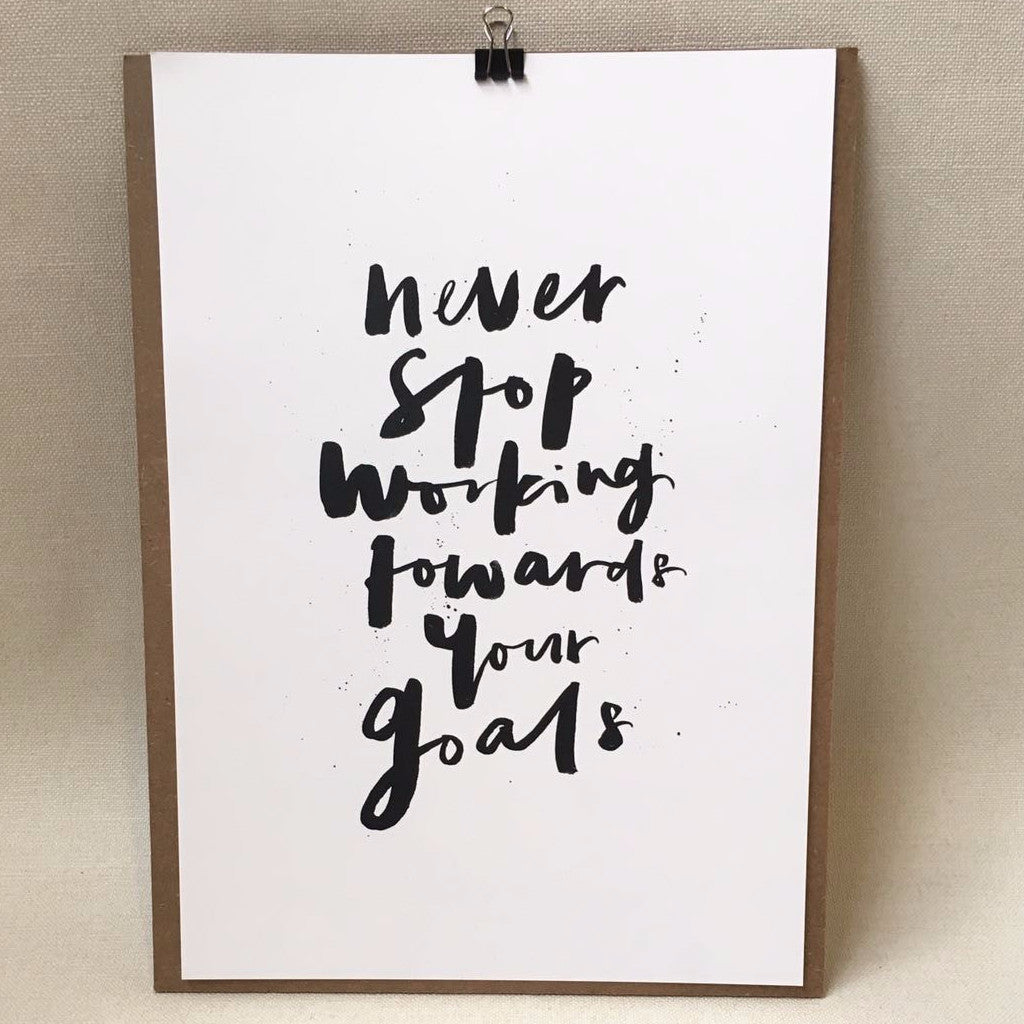 never
stop
working
towards
your
goals